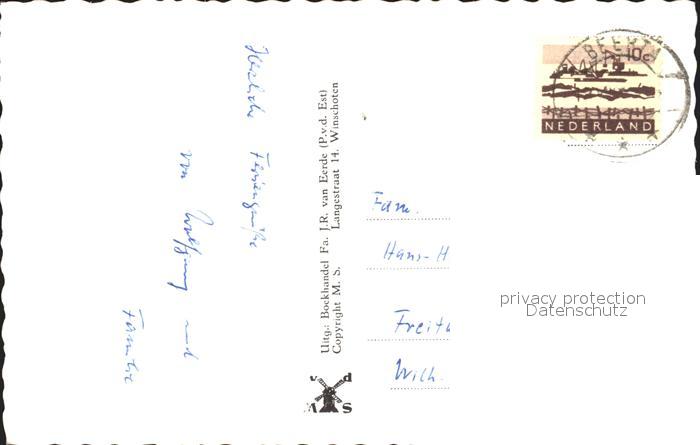 Herzliche Feriengrüße
von Wolfgang und
Familie
Uitg.: Boekhandel Fa. J.R. van Eerde (P.v.d. Est)
Copyright M. S. Langestraat 14. Winschoten
v d
M S
10c
NEDERLAND
BEERTA
Fam.
Hans-H
Freit
Wilh.
privacy protection
Datenschutz